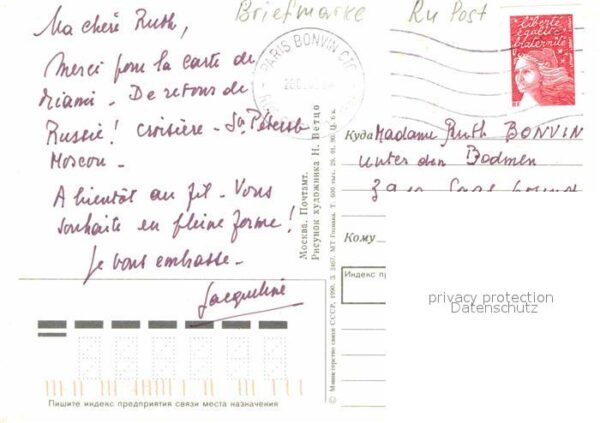 Briefmarke Ru Post
Ma chère Ruth,
Merci pour la carte de
Miami - De retour de
Russie! Croisière - St Pétersb
Moscou -
A bientôt au fil - Vous
souhaite en pleine forme!
Je vous embrasse -
Jacqueline
PARIS BONVIN CTC
liberté
égalité
fraternité
RF
Куда Madame Ruth BONVIN
unter den Bodmen
Кому
Индекс п
Москва. Почтамт.
Рисунок художника Н. Ветцо
© Министерство связи СССР, 1990. З. 3467. МТ Гознака. Т. 600 тыс. 29. 01. 90. Ц. 6 к.
privacy protection
Datenschutz
Пишите индекс предприятия связи места назначения